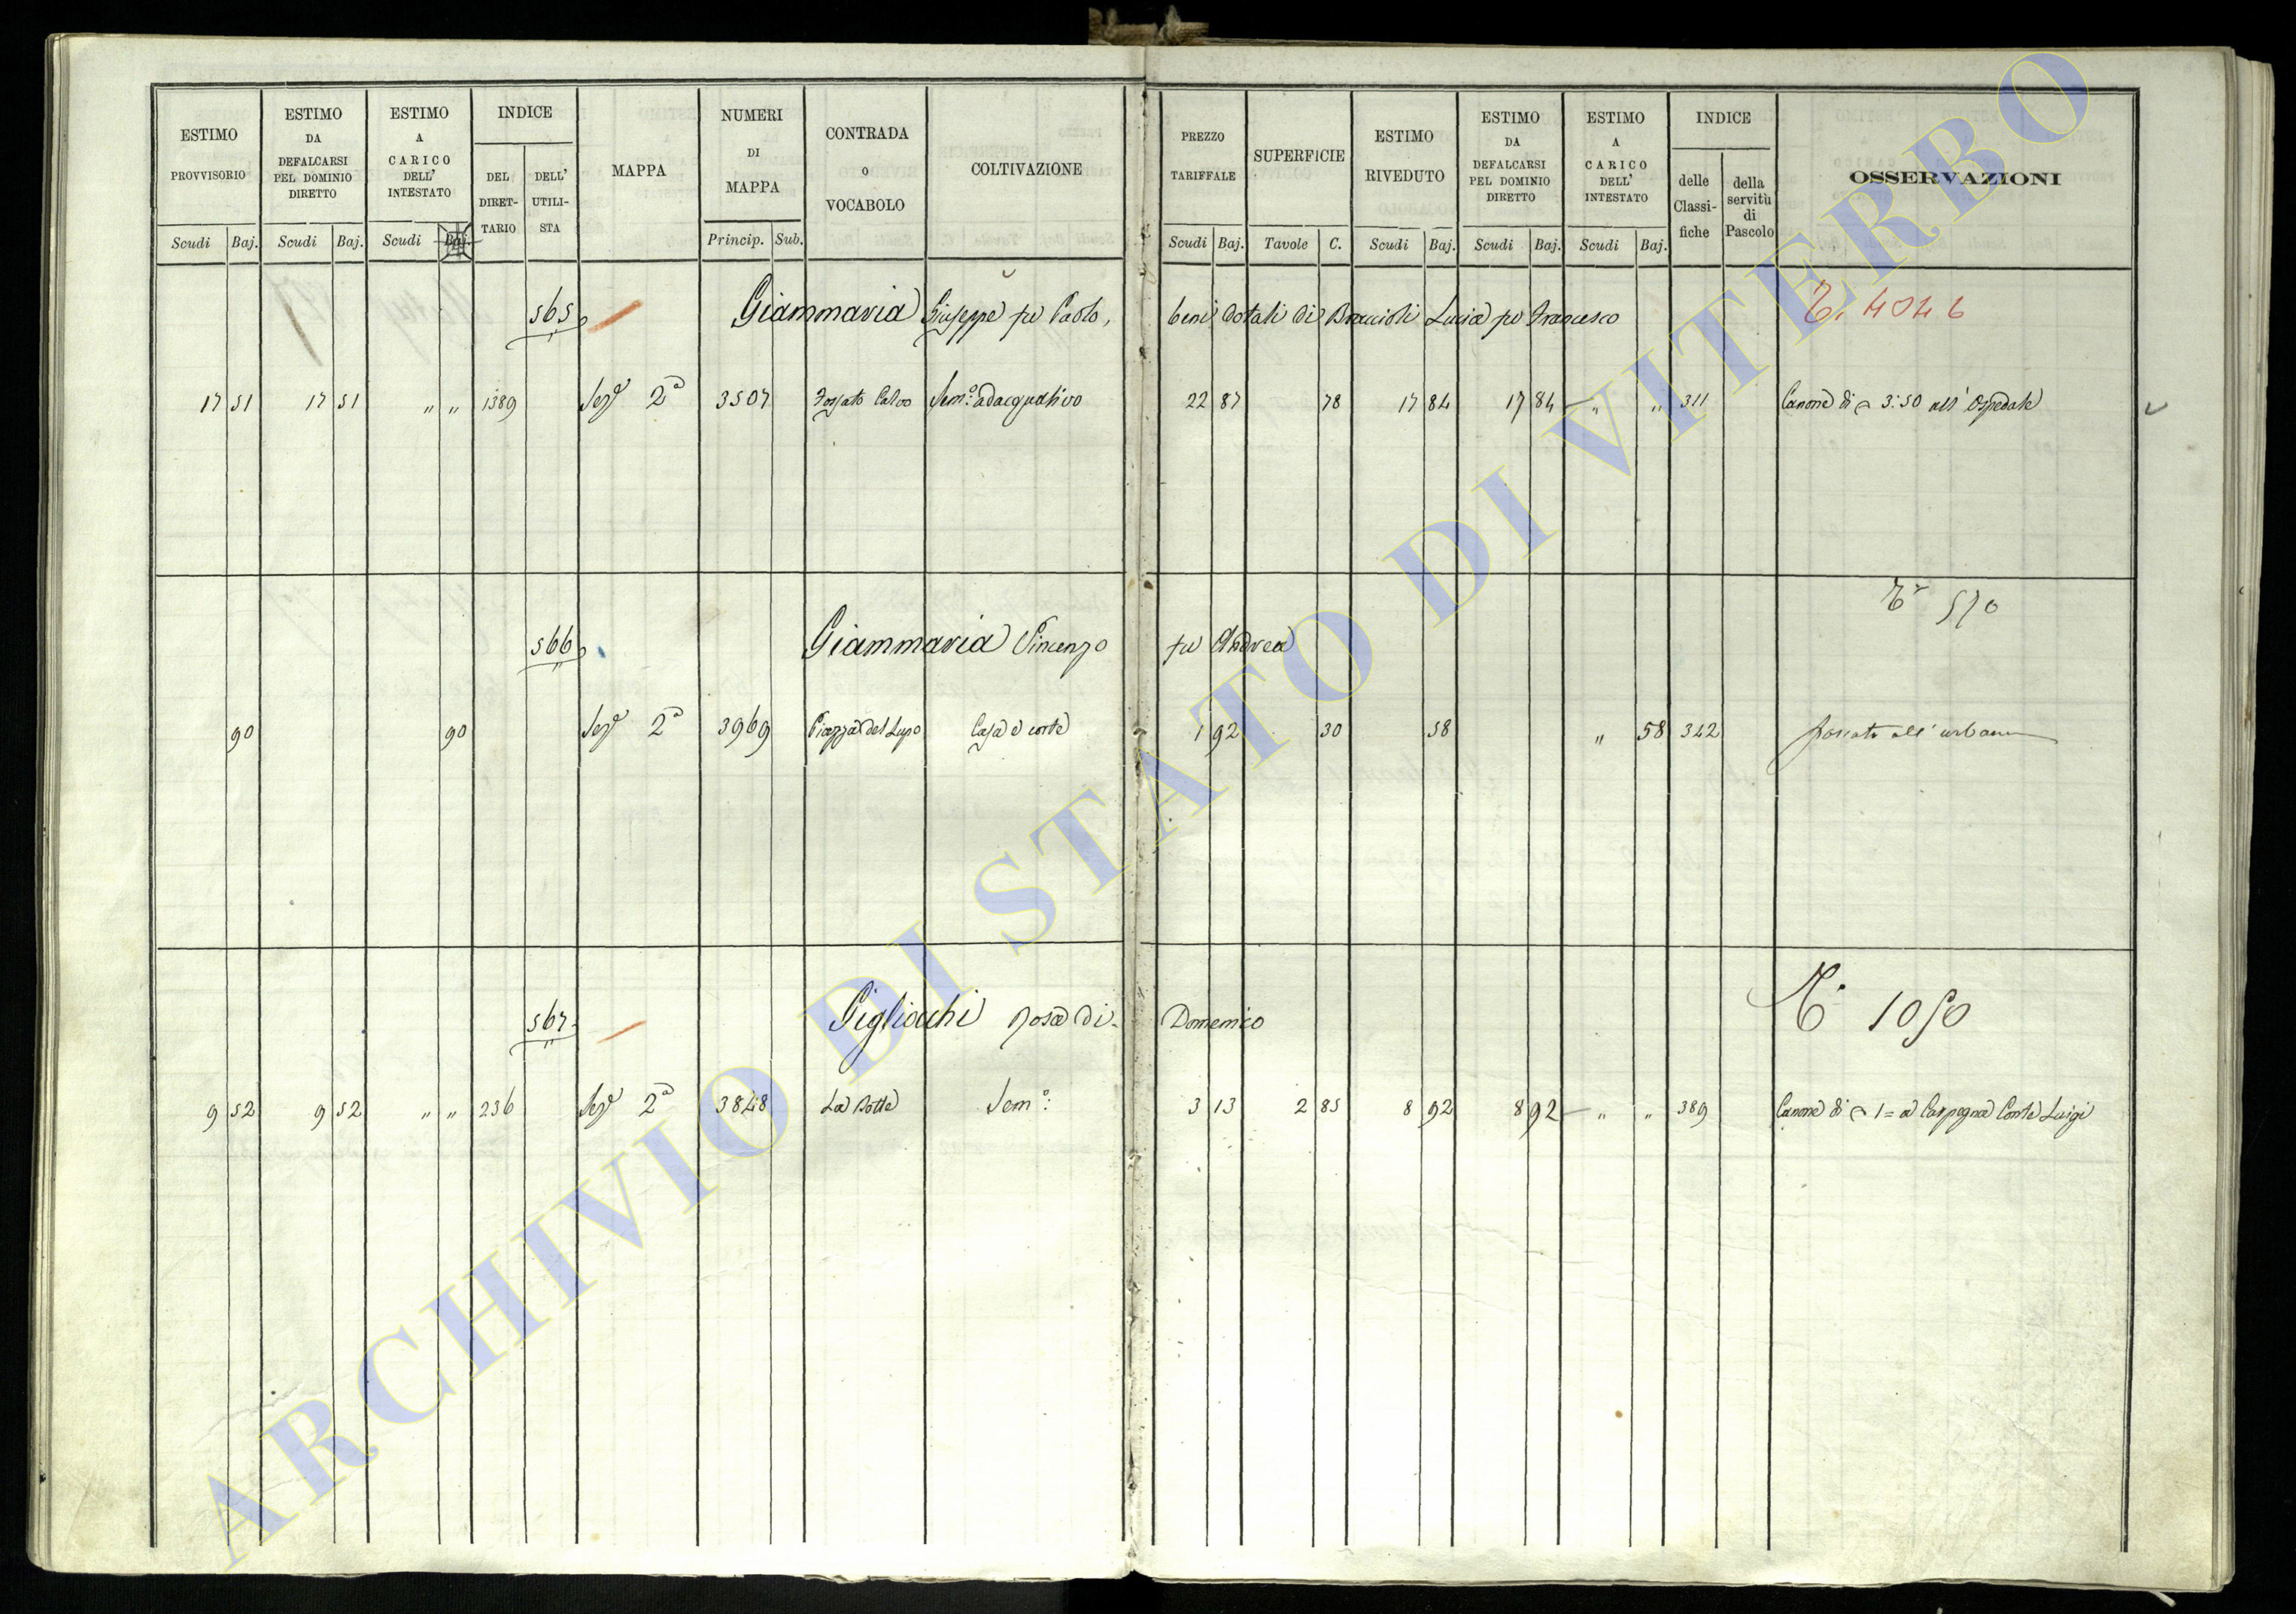 ESTIMO PROVVISORIO
Scudi Baj.
ESTIMO DA DEFALCARSI PEL DOMINIO DIRETTO
Scudi Baj.
ESTIMO A CARICO DELL' INTESTATO
Scudi Baj.
INDICE
DEL DIRET-TARIO
DELL' UTILI-STA
MAPPA
NUMERI DI MAPPA
Princip. Sub.
CONTRADA O VOCABOLO
COLTIVAZIONE
PREZZO TARIFFALE
Scudi Baj.
SUPERFICIE
Tavole C.
ESTIMO RIVEDUTO
Scudi Baj.
ESTIMO DA DEFALCARSI PEL DOMINIO DIRETTO
Scudi Baj.
ESTIMO A CARICO DELL' INTESTATO
Scudi Baj.
INDICE
delle Classi-fiche
della servitù di Pascolo
OSSERVAZIONI
565 Giammaria Giuseppe fu Paolo, beni dotali di Braccioli Lucia fu Francesco 4046
17 51 17 51 " " 1389 Sezе 2a 3507 Fossato Calvo Semo adacquativo 22 87 78 17 84 17 84 — " " 311 Canone di 3:50 all' Ospedale
570
566 Giammaria Vincenzo fu Andrea
90 90 Seze 2a 3969 Piazza del Lupo Casa e corte 1 92 30 58 " 58 342 all' urbano
567 Gigliacchi Rosa di Domenico 1050
9 52 9 52 " " 236 Seze 2a 3848 La Botte Semo: 3 13 2 85 8 92 8 92 — " " 389 Canone di 1= a Carpegna Conte Luigi
ARCHIVIO DI STATO DI VITERBO